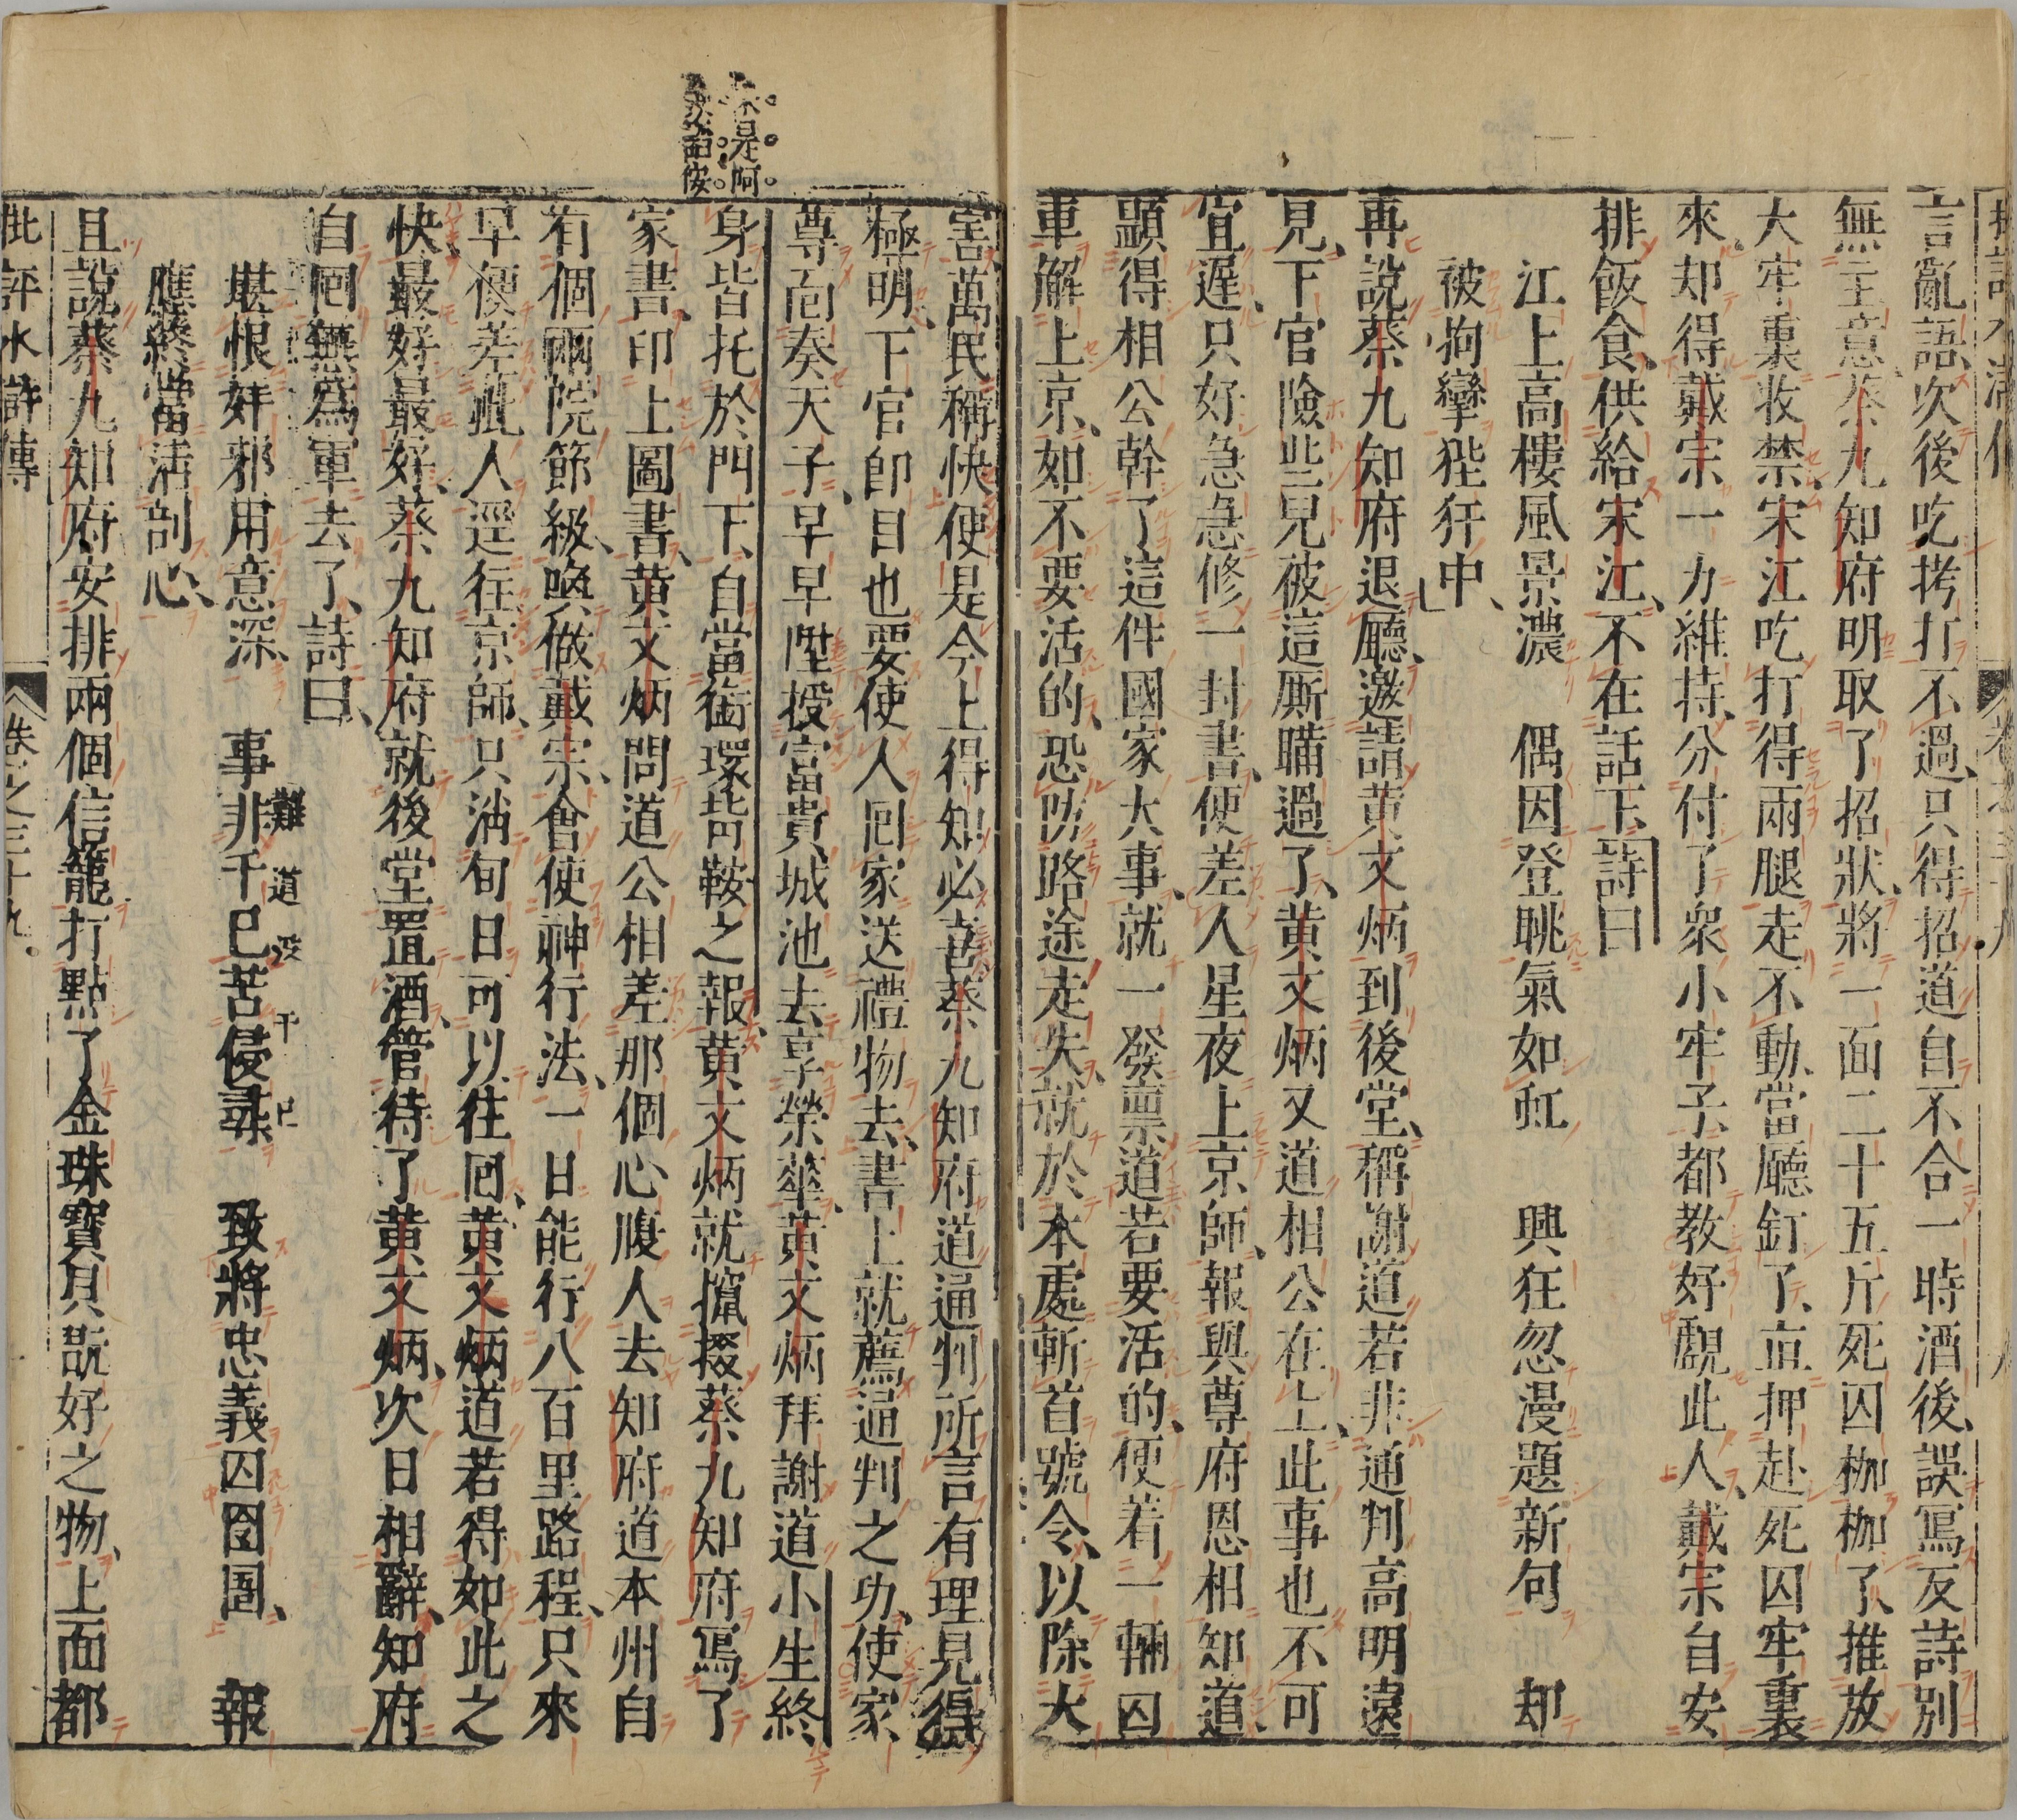 言亂語、次後吃拷打不過、只得招道自不合一時酒後、誤寫反詩別
無主意、蔡九知府明取了招狀、將一面二十五斤死囚枷枷了、推放
大牢裏收禁、宋江吃打得兩腿走不動、當廳釘了、直押赴死囚牢裏
來、却得戴宗一力維持、分付了衆小牢子都教好覷此人、戴宗自安
排飯食、供給宋江、不在話下詩曰
江上高樓風景濃　偶因登眺氣如虹　興狂忽漫題新句　却
被拘攣狴犴中、
再說蔡九知府退廳、邀請黄文炳到後堂、稱謝道若非通判高明遠
見、下官險些兒被這厮瞞過了、黄文炳又道相公在上、此事也不可
宜遲、只好急急修一封書、便差人星夜上京師、報與尊府恩相知道、
顯得相公幹了這件國家大事、就一發禀道若要活的、便着一輛囚
車解上京、如不要活的、恐防路途走失、就於本處斬首號令、以除大
害萬民稱快便是今上得知必喜蔡九知府道通判所言有理見得
極明、下官卽目也要使人囘家送禮物去、書上就薦通判之功、使家
尊面奏天子、早早陞授富貴城池去享榮華、黄文炳拜謝道小生終
身皆托於門下、自當銜環背鞍之報、黄文炳就攛掇蔡九知府寫了
家書、印上圖書、黄文炳問道公相差那個心腹人去知府道本州自
有個兩院節級、喚做戴宗、會使神行法、一日能行八百里路程、只來
早便差此人逕往京師、只消旬日可以往囘、黄文炳道若得如此之
快、最好最好、蔡九知府就後堂置酒管待了黄文炳、次日相辭、知府
自囘無爲軍去了、詩曰、
堪恨奸邪用意深、　事非千巳苦侵尋　致將忠義囚囹圄、　報
難道没干巳
應終當活剖心、
且說蔡九知府安排兩個信籠打點了金珠寶貝翫好之物、上面都
批評水滸傳　卷之三十九